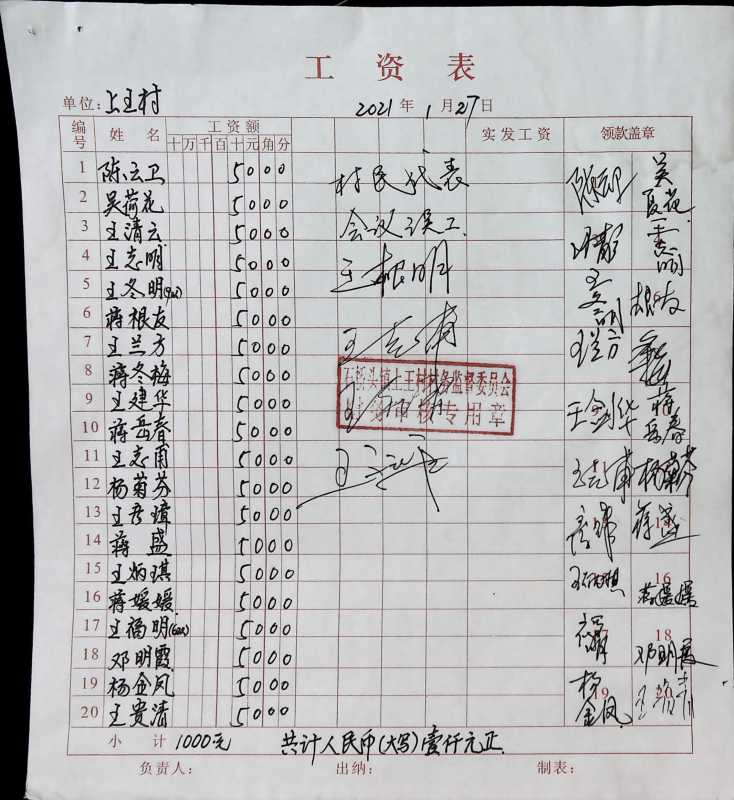 工资表
单位：上王村 2021年1月27日
编号 姓名 工资额 实发工资 领款盖章
十 万 千 百 十 元 角 分
1 陈云卫 5000 村民代表
2 吴荷花 5000
3 王清云 5000 会议误工
4 王志明 5000 王根明
5 王冬明 5000
6 蒋根友 5000 根友
7 王兰方 5000
8 蒋冬梅 5000 石桥头镇上王村村务监督委员会
9 王建华 5000 财务审核专用章 王剑华
10 蒋岳春 5000 蒋岳春
11 王志甫 5000 王志甫
12 杨菊芬 5000
13 5000
14 蒋盛 5000 蒋盛
15 王炳琪 5000
16 蒋媛媛 5000 16 蒋媛媛
17 王福明 5000
18 邓明霞 5000 18 邓明霞
19 杨金凤 5000 杨金凤
20 王贵清 5000
小计 1000元 共计人民币(大写)壹仟元正
负责人： 出纳： 制表：